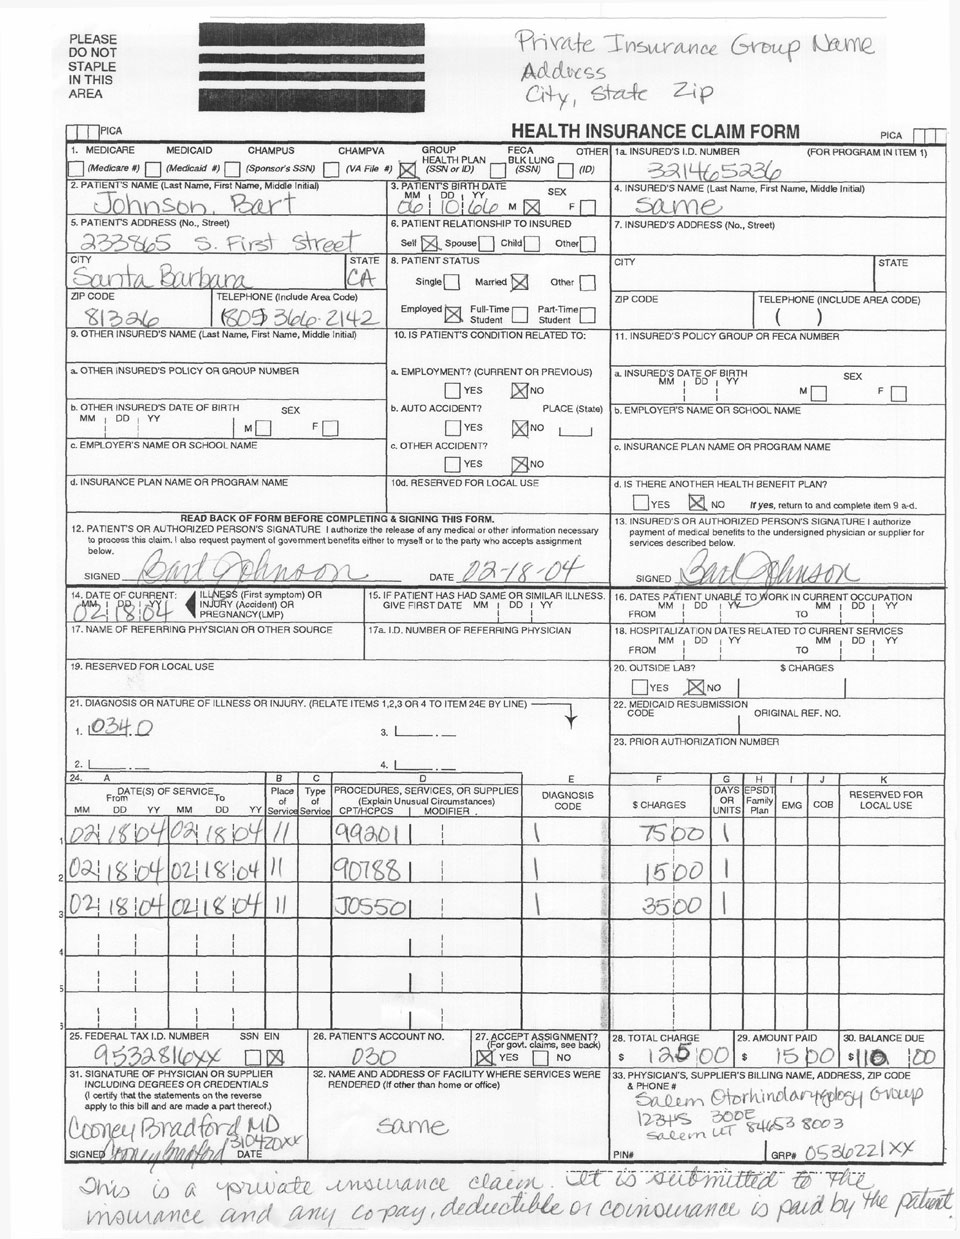 PLEASE
DO NOT
STAPLE
IN THIS
AREA
Private Insurance Group Name
Address
City, State Zip
PICA
HEALTH INSURANCE CLAIM FORM
PICA
1. MEDICARE MEDICAID CHAMPUS CHAMPVA GROUP HEALTH PLAN FECA BLK LUNG OTHER
(Medicare #) (Medicaid #) (Sponsor's SSN) (VA File #) (SSN or ID) (SSN) (ID)
1a. INSURED'S I.D. NUMBER (FOR PROGRAM IN ITEM 1)
321465236
2. PATIENT'S NAME (Last Name, First Name, Middle Initial)
Johnson, Bart
3. PATIENT'S BIRTH DATE
MM DD YY SEX
06 10 66 M F
4. INSURED'S NAME (Last Name, First Name, Middle Initial)
same
5. PATIENT'S ADDRESS (No., Street)
233865 S. First Street
6. PATIENT RELATIONSHIP TO INSURED
Self Spouse Child Other
7. INSURED'S ADDRESS (No., Street)
CITY STATE
Santa Barbara CA
8. PATIENT STATUS
Single Married Other
CITY STATE
ZIP CODE TELEPHONE (Include Area Code)
81326 (805) 366-2142
Employed Full-Time Student Part-Time Student
ZIP CODE TELEPHONE (INCLUDE AREA CODE)
( )
9. OTHER INSURED'S NAME (Last Name, First Name, Middle Initial)
10. IS PATIENT'S CONDITION RELATED TO:
11. INSURED'S POLICY GROUP OR FECA NUMBER
a. OTHER INSURED'S POLICY OR GROUP NUMBER
a. EMPLOYMENT? (CURRENT OR PREVIOUS)
YES NO
a. INSURED'S DATE OF BIRTH SEX
MM DD YY M F
b. OTHER INSURED'S DATE OF BIRTH SEX
MM DD YY M F
b. AUTO ACCIDENT? PLACE (State)
YES NO
b. EMPLOYER'S NAME OR SCHOOL NAME
c. EMPLOYER'S NAME OR SCHOOL NAME
c. OTHER ACCIDENT?
YES NO
c. INSURANCE PLAN NAME OR PROGRAM NAME
d. INSURANCE PLAN NAME OR PROGRAM NAME
10d. RESERVED FOR LOCAL USE
d. IS THERE ANOTHER HEALTH BENEFIT PLAN?
YES NO If yes, return to and complete item 9 a-d.
READ BACK OF FORM BEFORE COMPLETING & SIGNING THIS FORM.
12. PATIENT'S OR AUTHORIZED PERSON'S SIGNATURE I authorize the release of any medical or other information necessary
to process this claim. I also request payment of government benefits either to myself or to the party who accepts assignment
below.
SIGNED Bart Johnson DATE 02-18-04
13. INSURED'S OR AUTHORIZED PERSON'S SIGNATURE I authorize
payment of medical benefits to the undersigned physician or supplier for
services described below.
SIGNED Bart Johnson
14. DATE OF CURRENT:
MM DD YY
02 18 04
ILLNESS (First symptom) OR
INJURY (Accident) OR
PREGNANCY (LMP)
15. IF PATIENT HAS HAD SAME OR SIMILAR ILLNESS.
GIVE FIRST DATE MM DD YY
16. DATES PATIENT UNABLE TO WORK IN CURRENT OCCUPATION
MM DD YY MM DD YY
FROM TO
17. NAME OF REFERRING PHYSICIAN OR OTHER SOURCE
17a. I.D. NUMBER OF REFERRING PHYSICIAN
18. HOSPITALIZATION DATES RELATED TO CURRENT SERVICES
MM DD YY MM DD YY
FROM TO
19. RESERVED FOR LOCAL USE
20. OUTSIDE LAB? $ CHARGES
YES NO
21. DIAGNOSIS OR NATURE OF ILLNESS OR INJURY. (RELATE ITEMS 1,2,3 OR 4 TO ITEM 24E BY LINE)
1. 034.0 3.
2. 4.
22. MEDICAID RESUBMISSION
CODE ORIGINAL REF. NO.
23. PRIOR AUTHORIZATION NUMBER
24. A B C D E F G H I J K
DATE(S) OF SERVICE
From To
MM DD YY MM DD YY
Place of Service
Type of Service
PROCEDURES, SERVICES, OR SUPPLIES
(Explain Unusual Circumstances)
CPT/HCPCS MODIFIER
DIAGNOSIS CODE
$ CHARGES
DAYS OR UNITS
EPSDT Family Plan
EMG
COB
RESERVED FOR LOCAL USE
1 02 18 04 02 18 04 11 99201 1 75 00 1
2 02 18 04 02 18 04 11 90788 1 15 00 1
3 02 18 04 02 18 04 11 J0550 1 35 00 1
4
5
6
25. FEDERAL TAX I.D. NUMBER SSN EIN
9532816XX
26. PATIENT'S ACCOUNT NO.
030
27. ACCEPT ASSIGNMENT?
(For govt. claims, see back)
YES NO
28. TOTAL CHARGE
$ 125 00
29. AMOUNT PAID
$ 15 00
30. BALANCE DUE
$ 110 00
31. SIGNATURE OF PHYSICIAN OR SUPPLIER
INCLUDING DEGREES OR CREDENTIALS
(I certify that the statements on the reverse
apply to this bill and are made a part thereof.)
Cooney Bradford MD
310420XX
SIGNED Cooney Bradford DATE
32. NAME AND ADDRESS OF FACILITY WHERE SERVICES WERE
RENDERED (If other than home or office)
same
33. PHYSICIAN'S, SUPPLIER'S BILLING NAME, ADDRESS, ZIP CODE
& PHONE #
Salem Otorhindarygology Group
1234S 300E
Salem UT 84653 8003
PIN# GRP# 0536221XX
This is a private insurance claim. It is submitted to the
insurance and any copay, deductible or coinsurance is paid by the patient.